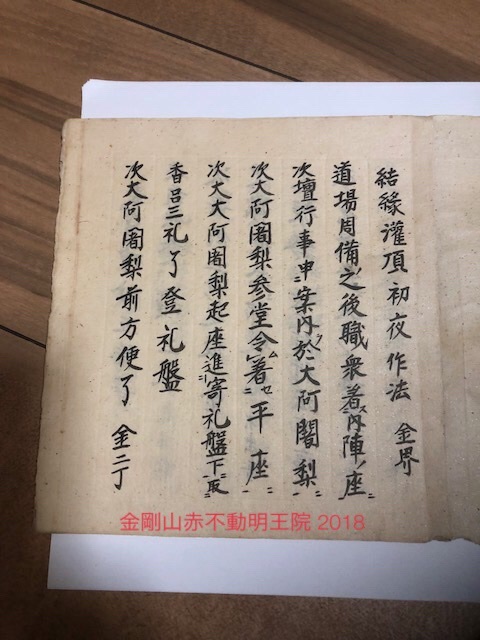 結縁灌頂初夜作法 金界
道場周備之後職衆著内陣ノ座ニ
次壇行事申ニ案内ヲ於大阿闍梨ニ
次大阿闍梨参堂令ム著セ平座ニ
次大大阿闍梨起座進寄リ礼盤下ニ取
香呂三礼了登礼盤
次大阿闍梨前方便了 金二丁
金剛山赤不動明王院 2018